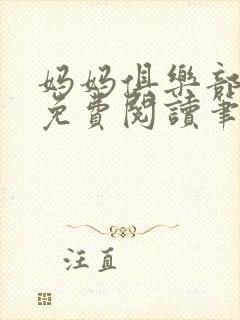 媽媽俱樂部
免費閱讀筆
汪直